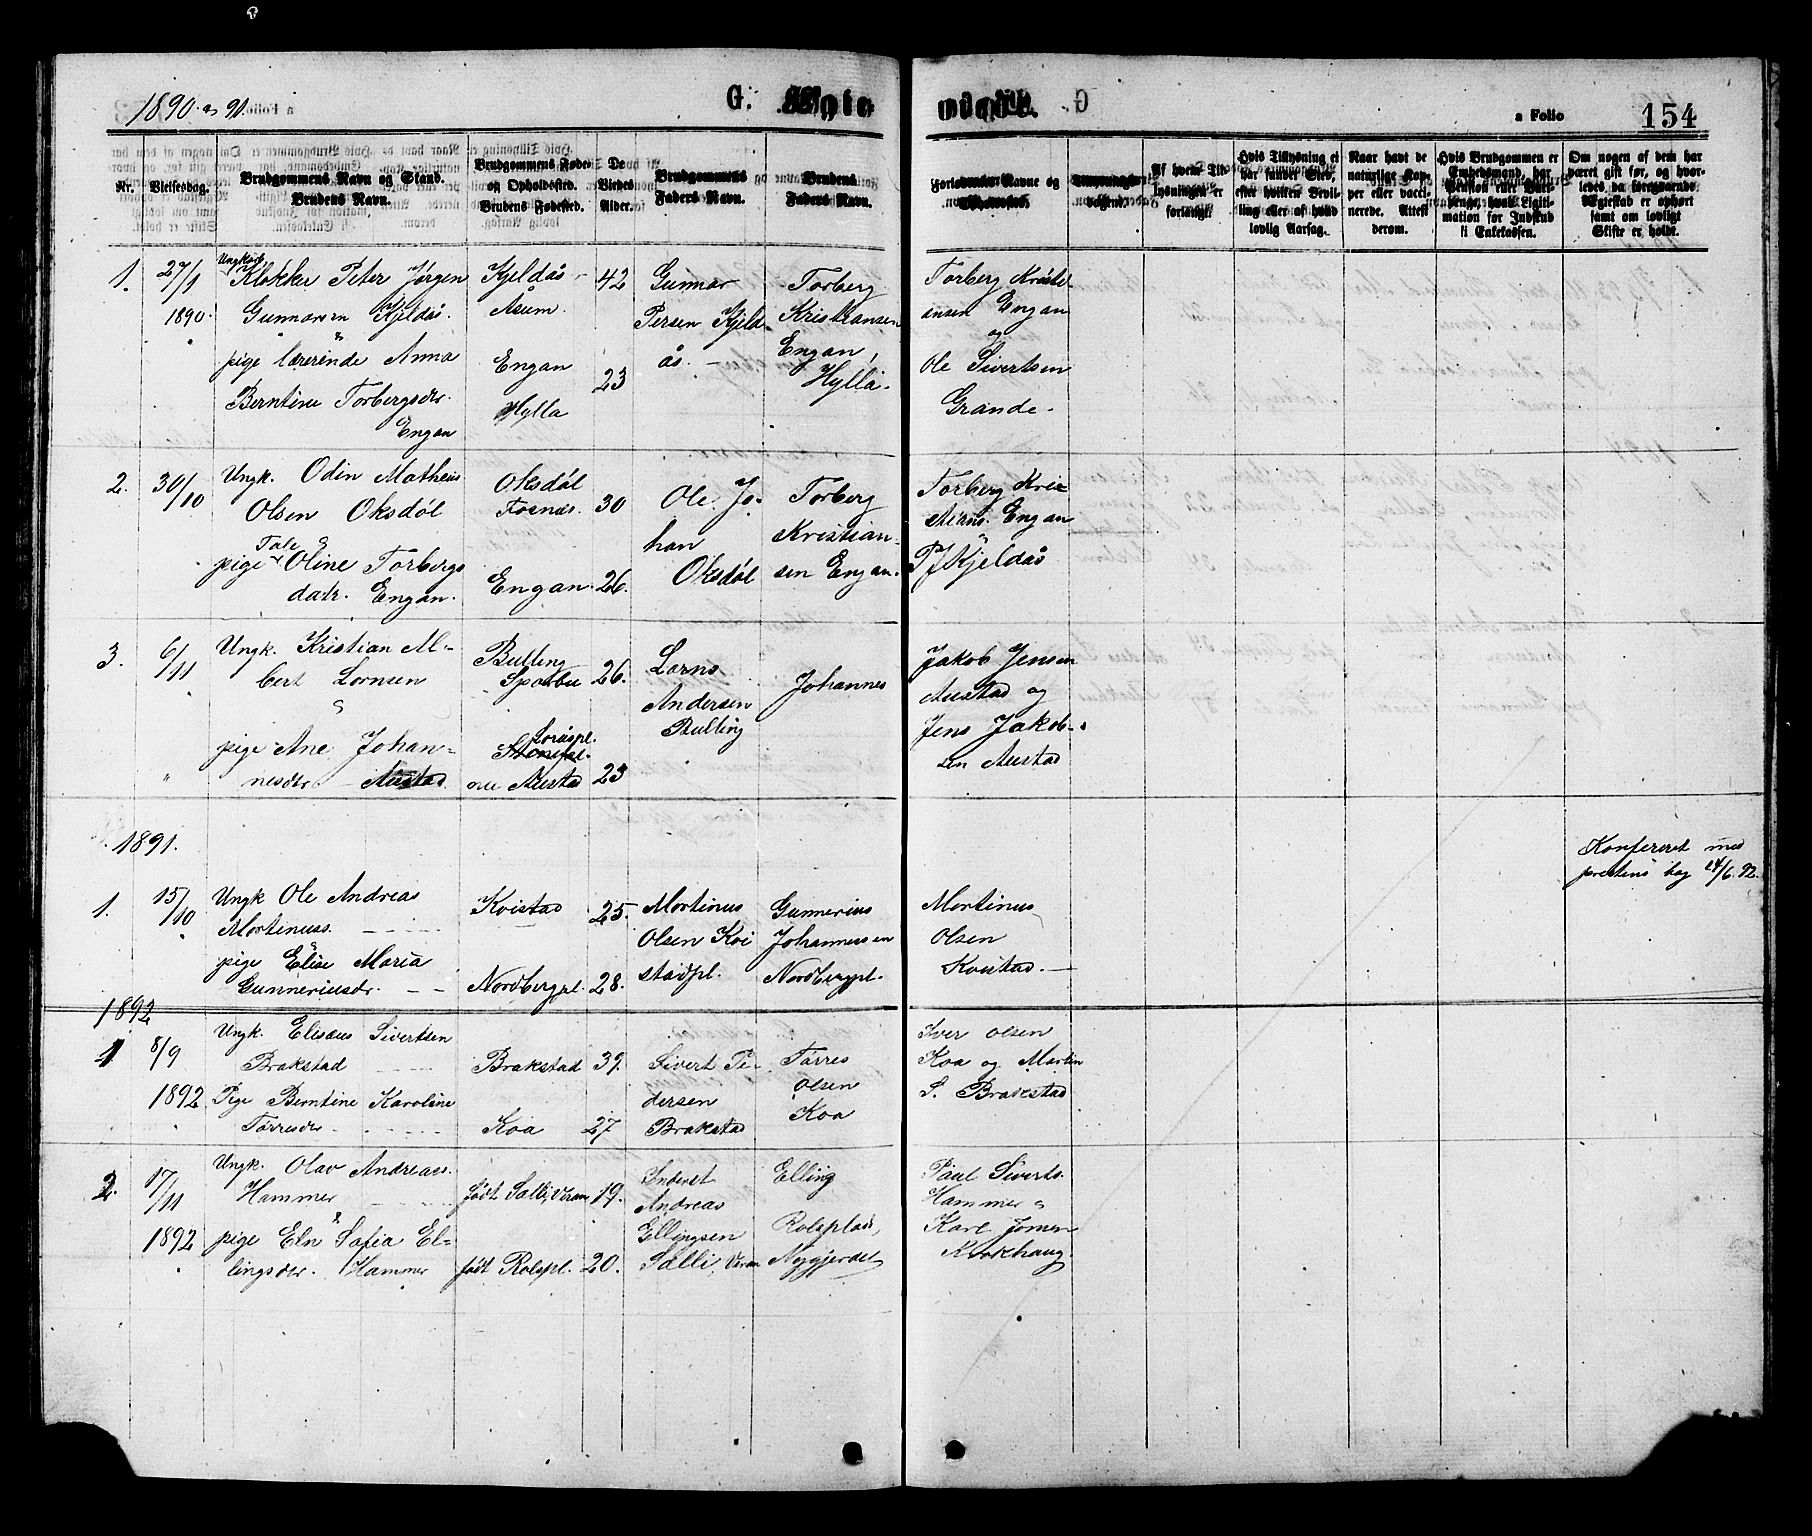 1890 og 91.
G.
a Folio
154
Nr.
Vielsesdag.
Brudgommens Navn og Stand.
Brudens Navn.
Brudgommens Føde-
og Opholdssted.
Brudens Fødested.
De
Viedes
Alder.
Brudgommens
Faders Navn.
Brudens
Faders Navn.
Forlovernes Navne og
Af hvem Til-
lysningen er
forlangt.
Hvis Tillysning ei
har fundet Sted,
efter hvilken Bevil-
ling eller af hvad
lovlig Aarsag.
Naar havt de
naturlige Kop-
per eller vacci-
nerede. Attest
derom.
Hvis Brudgommen er
Embedsmand, har
Pension eller Vart-
penge, hvad Legiti-
mation for Indskud
i Enkekassen.
Om nogen af dem har
været gift før, og hvor-
ledes da foregaaende
Ægteskab er ophørt
samt om lovligt
Skifte er holdt.
1.
27/1
1890.
Ungkarl
Klokker Peter Jørgen
Gunnarsen Kjeldås.
&
pige lærerinde Anna
Berntine Torbergsdr.
Engan
Kjeldås
Åsum.
Engan
Hylla
42
23
Gunnar
Persen Kjeld-
ås.
Torberg
Kristiansen
Engan,
Hylla.
Torberg Kristi-
ansen Engan
og
Ole Sivertsen
Grande.
2.
30/10
Ungk. Odin Matheus
Olsen Oksdøl
Tale &
pige Oline Torbergs
datr. Engan.
Oksdøl
Fosnæs.
Engan.
30
26.
Ole Jo-
han
Oksdøl
Torberg
Kristian-
sen Engan.
Torberg Kris-
tians. Engan
&
P J Kjeldås
3.
6/11
Ungk. Kristian Al-
bert Lornsen
&
pige Ane Johan-
nesdr. Austad
Bulling
Sparbu
Austad
26.
23
Lorns
Andersen
Bulling
Johannes
Jakob Jensen
Austad og
Jens Jakob-
sen Austad
1891.
Konfereret med
prestens bog 24/6 92.
1.
15/10
Ungk Ole Andreas
Mortinuss.
&
pige Elise Maria
Gunneriusdr.
Kvistad
Nordbergpl.
25.
28.
Mortinus
Olsen Kvi
stadpl.
Gunnerius
Johannessen
Nordbergpl.
Mortinus
Olsen
Kvistad.
1892
1
8/9
1892
Ungk. Elisæus Sivertsen
Brakstad
Pige Berntine Karoline
Tørresdr
Brakstad
Koa
39.
27
Sivert Pe-
dersen
Brakstad
Tørres
Olsen
Koa
Iver Olsen
Koa og Martin
S. Brakstad
2.
17/11
1892
Ungk. Olav Andreass.
Hammer
&
pige Eln Safia El-
lingsdr. Hammer
født Salli, Veran
født Rolspl.
19.
20.
Inderet
Andreas
Ellingsen
Salli, Veran
Elling
Rolsplads,
Nygjerdet
Paul Siverts.
Hammer &
Karl Jonsen